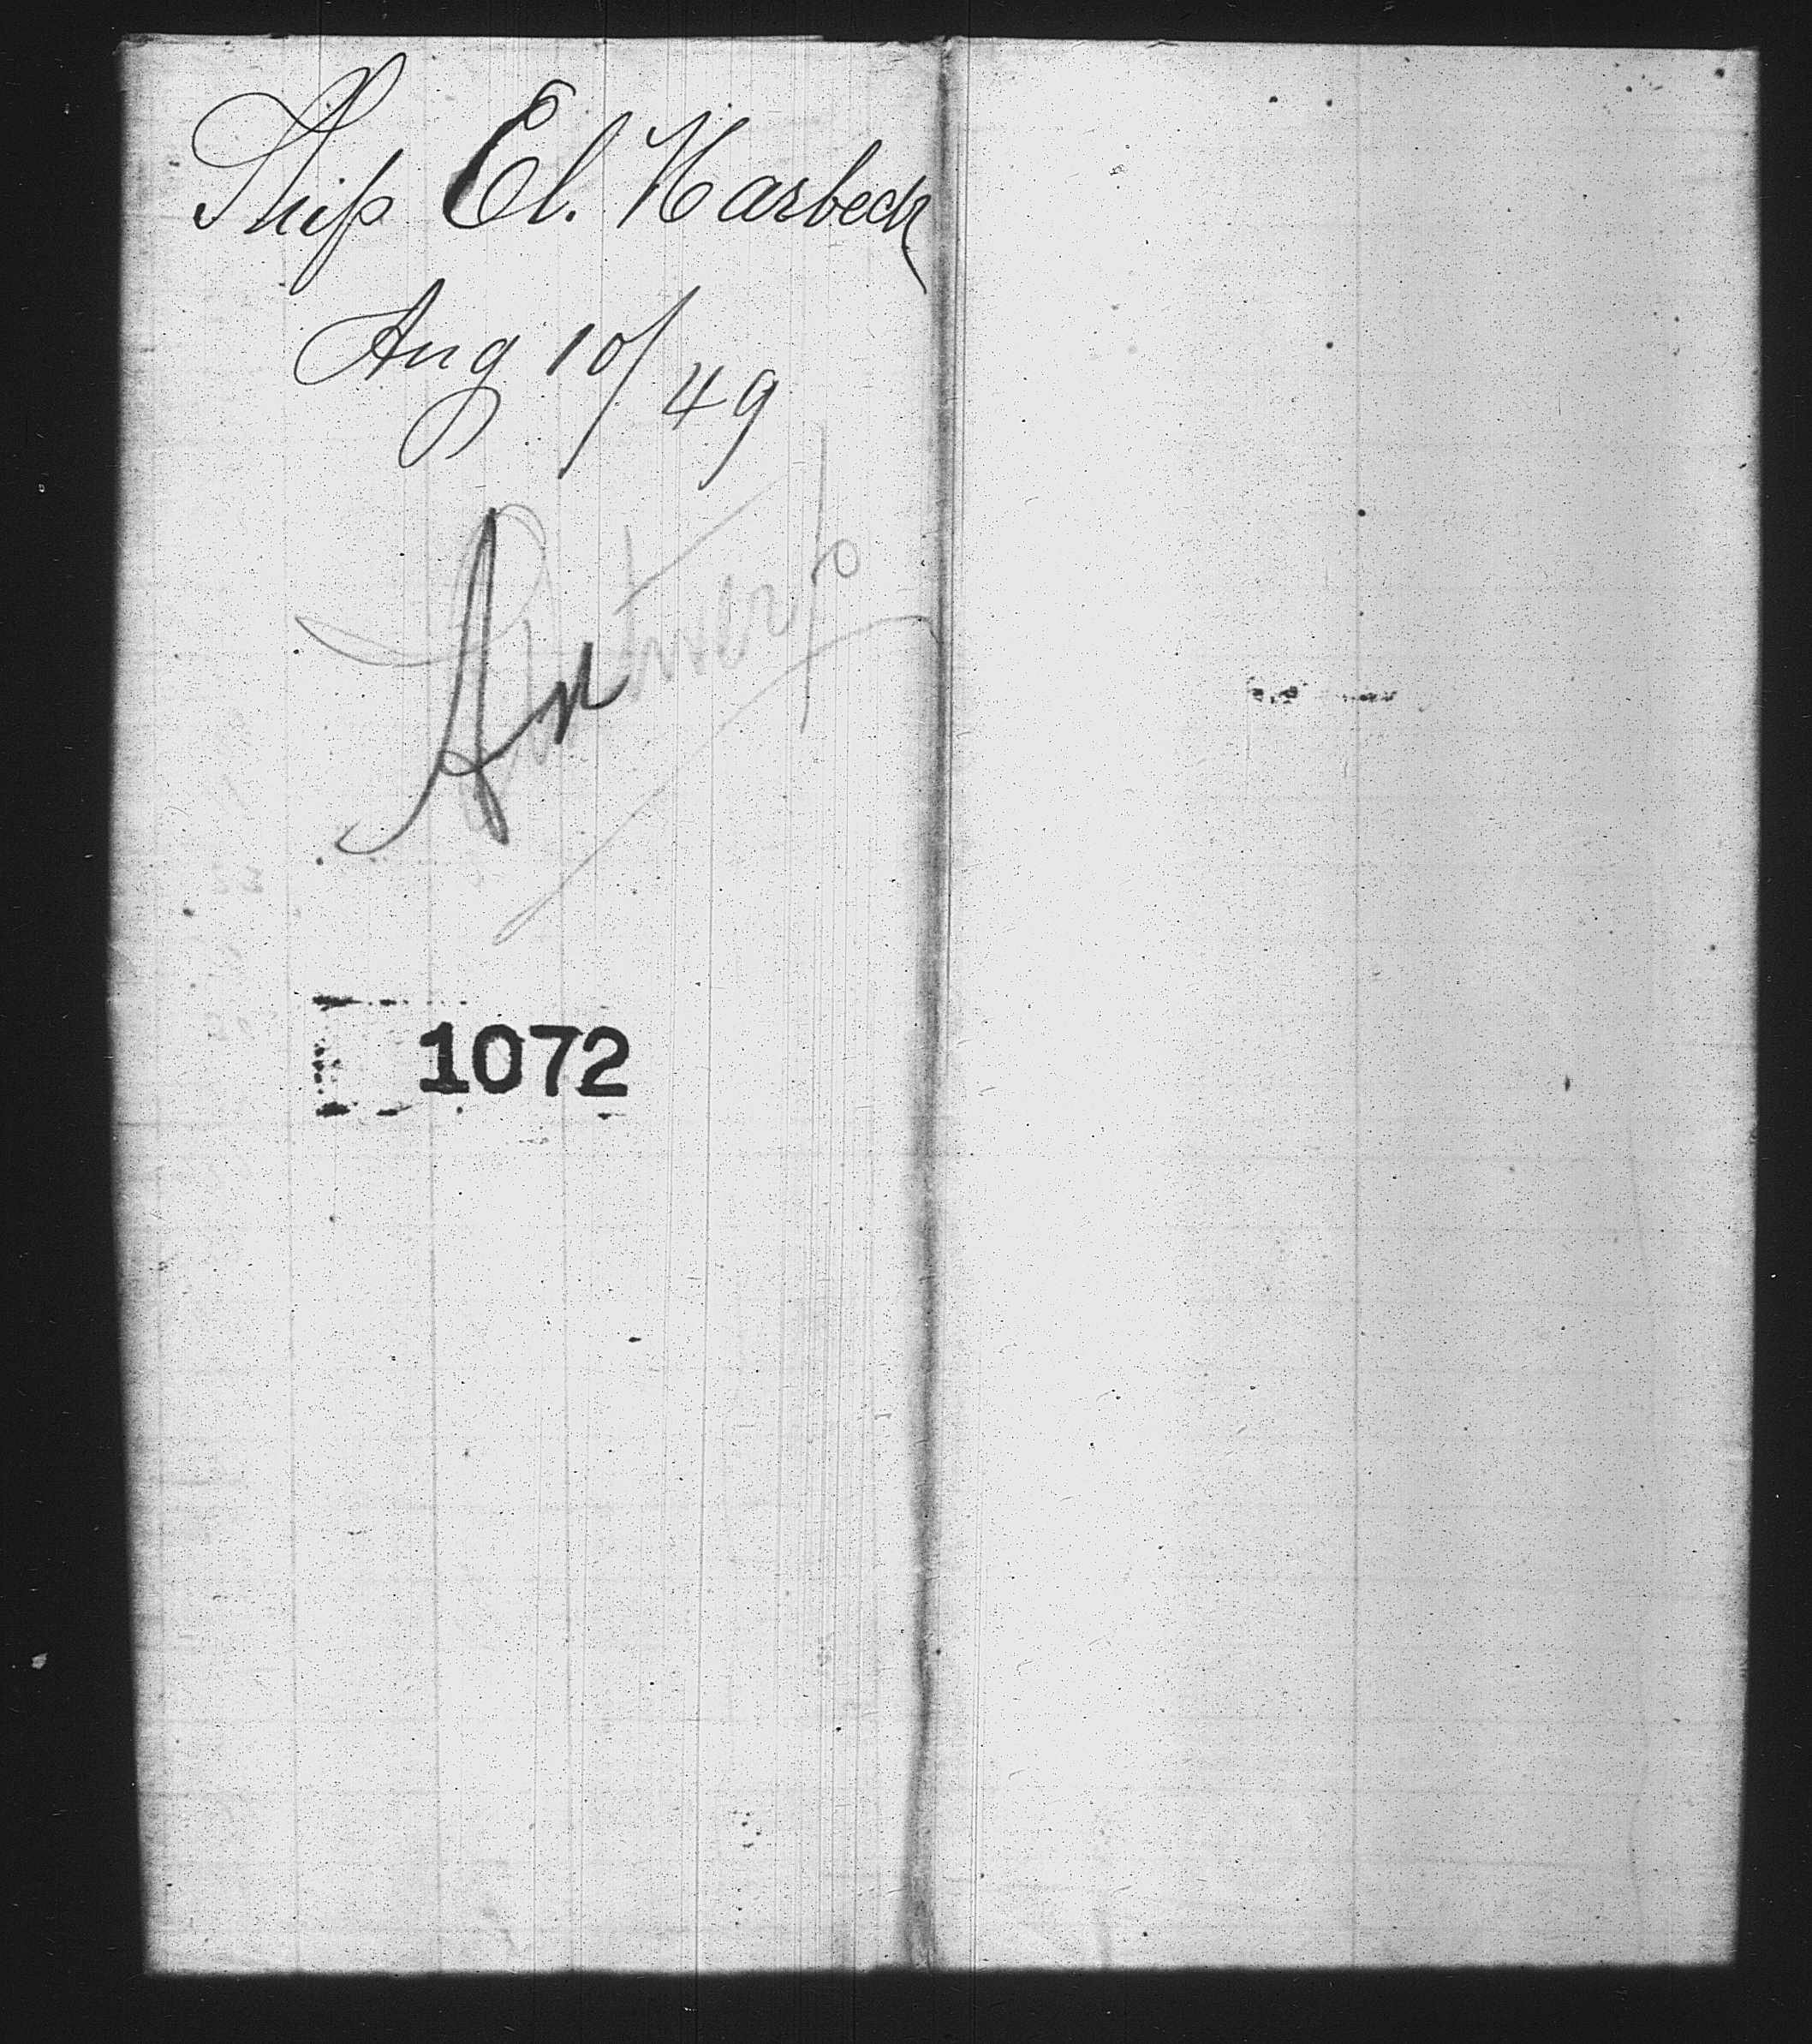 Ship El. Harbeck
Aug 10/49
Antwerp
1072